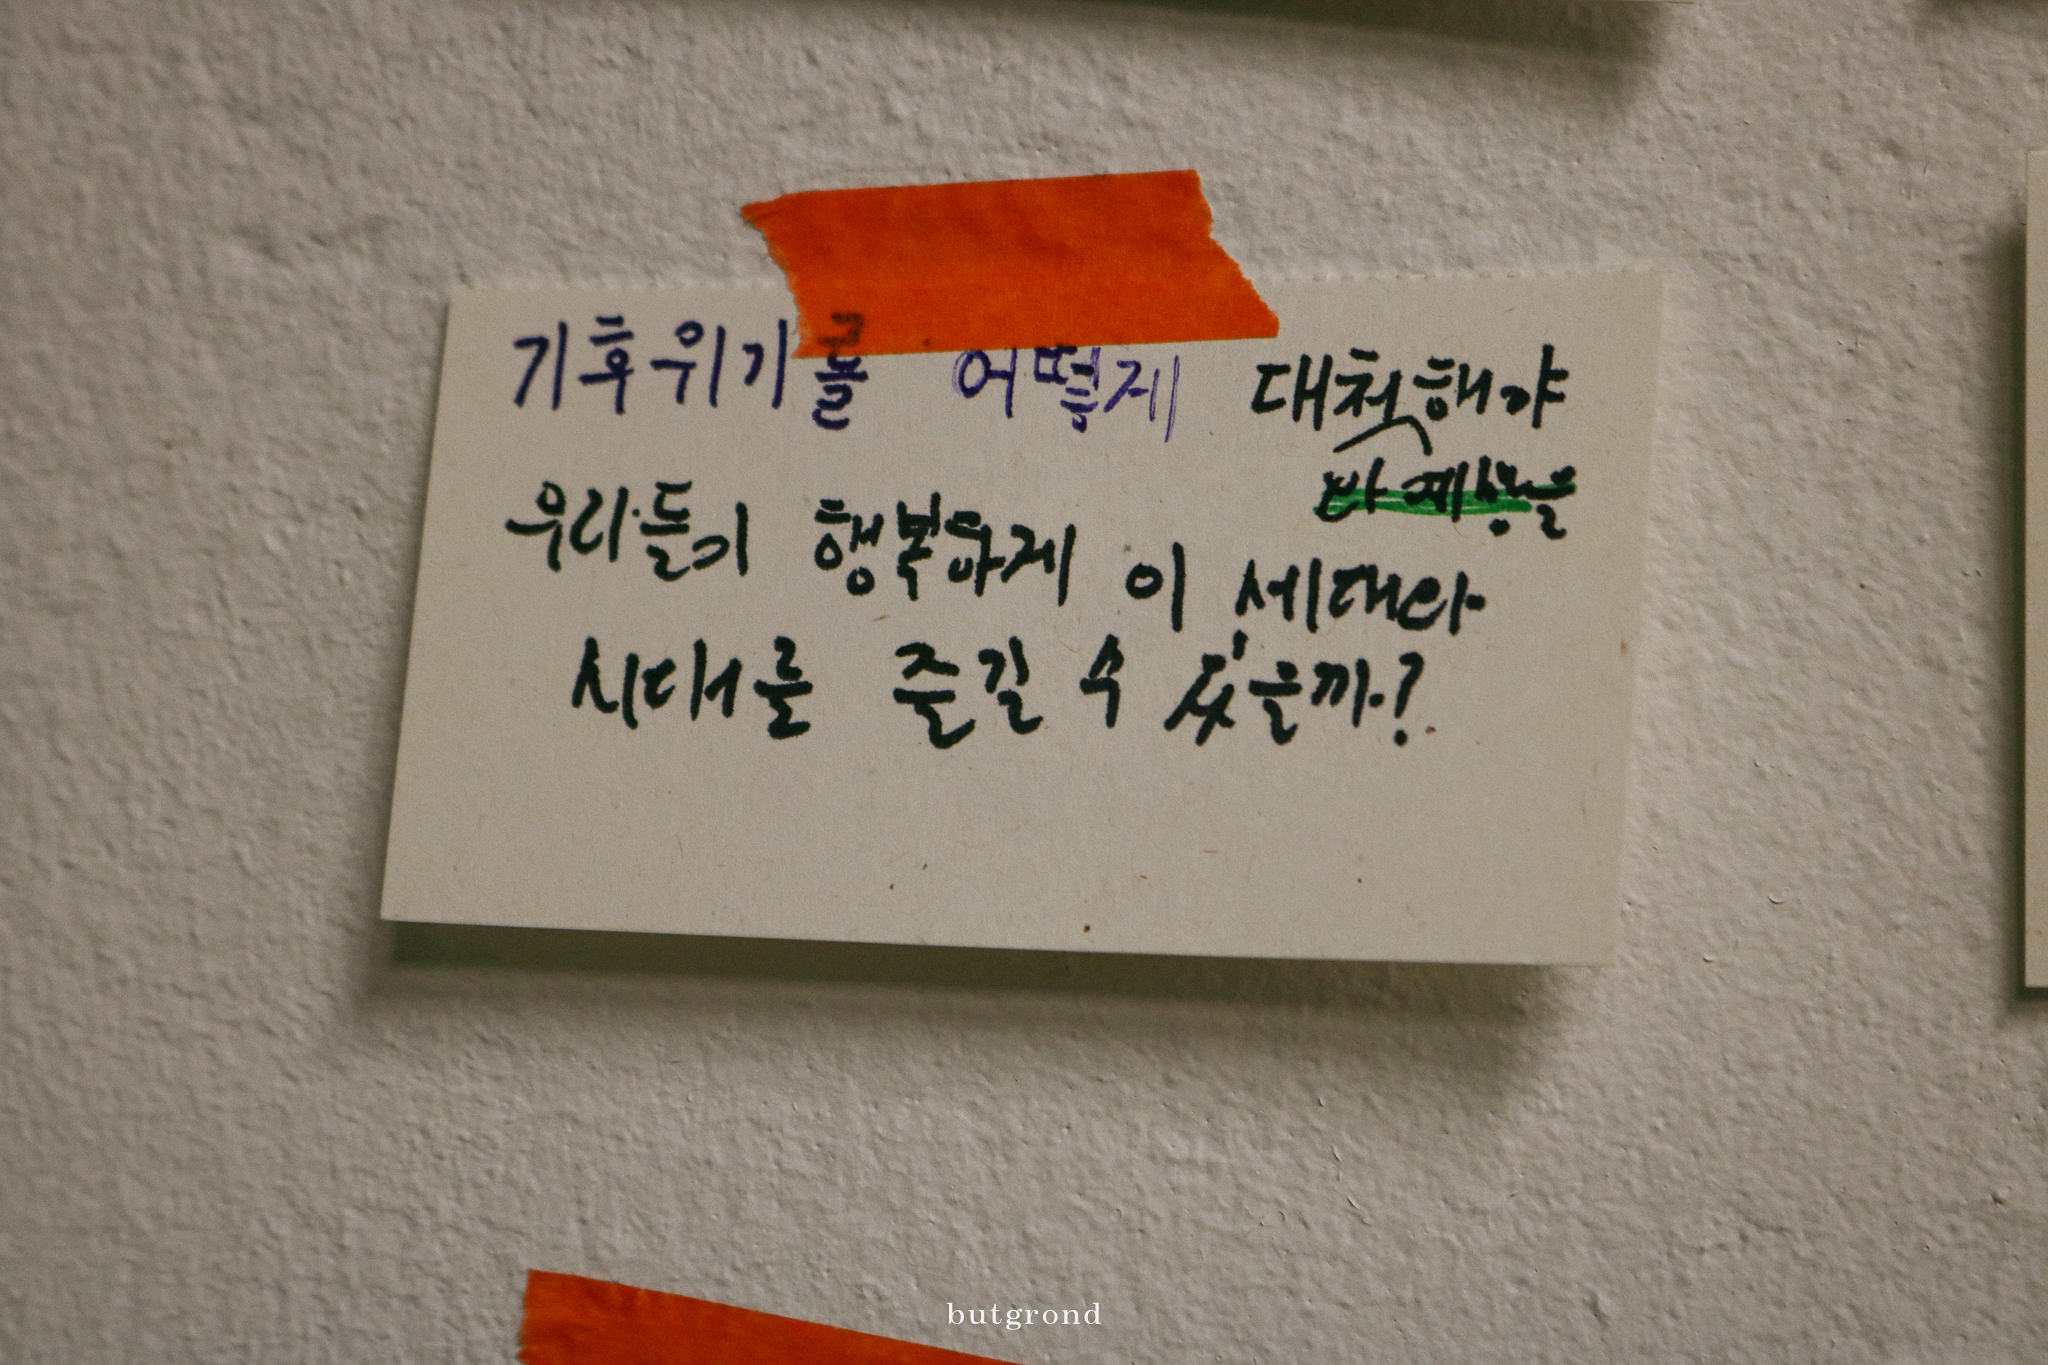 기후위기를 어떻게 대척해야
우리들이 행복하게 이 세대와
시대를 즐길 수 있을까?
butgrond